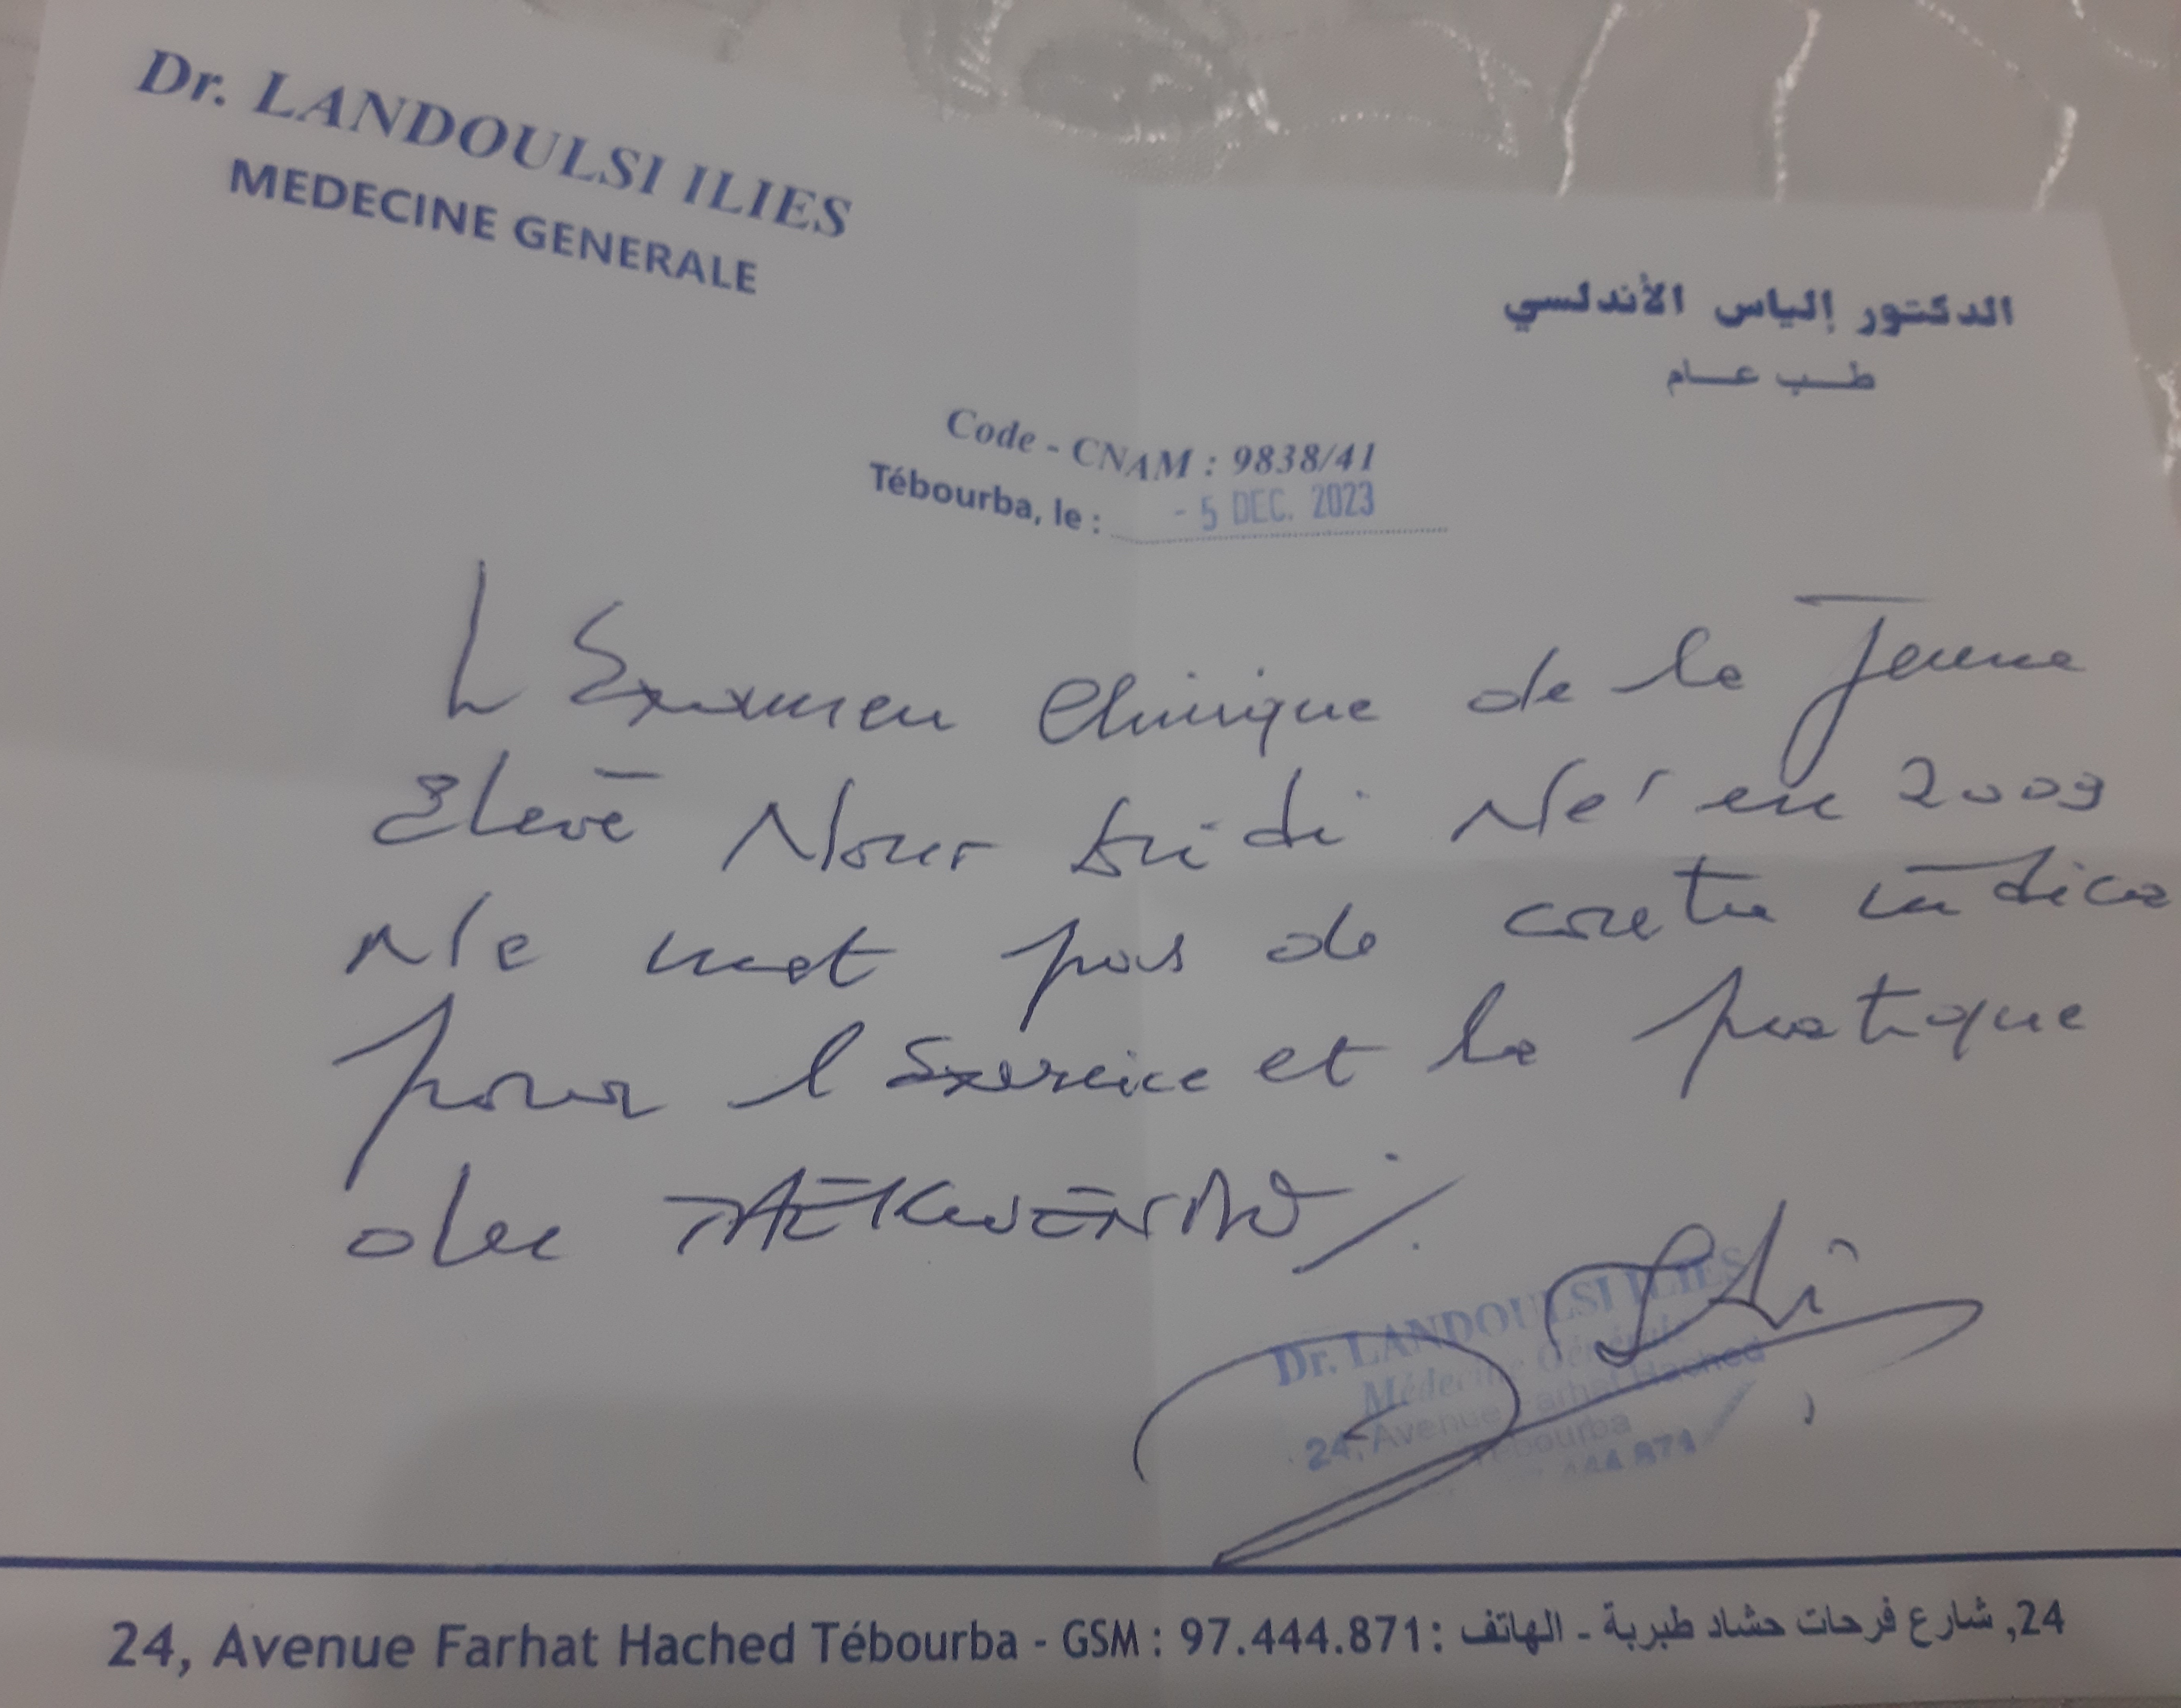 Dr. LANDOULSI ILIES
MEDECINE GENERALE
الدكتور إلياس الأندلسي
طب عام
Code - CNAM : 9838/41
Tébourba, le : - 5 DEC. 2023
L Examen Clinique de le Jeune
Eleve Nour Né en 2009
Ne met pas de contre indica
pour l Exercice et la pratique
du TAEKWENDO
Dr. LANDOULSI ILIES
Médecine Générale
24, Avenue Farhat Hached
Tébourba
444.871
24, Avenue Farhat Hached Tébourba - GSM : 97.444.871 : الهاتف - 24, شارع فرحات حشاد طبربة